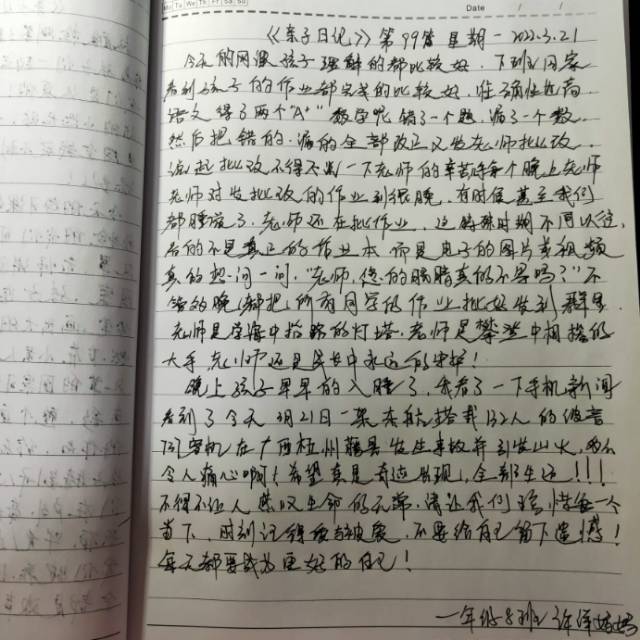 Mo Tu We Th Fr Sa Su
Date / /
《亲子日记》第99篇 星期一 2022.3.21
今天的网课孩子理解的都比较好，下班回家
看到孩子的作业都完成的比较好，准确性也高
语文得了两个"A+"数学呢错了一个题，漏了一个数
然后把错的.漏的全部改正又发老师批改.
说起批改不得不说一下老师的辛苦啦每个晚上老师
老师对发批改的作业到很晚，有时候甚至我们
都睡着了，老师还在批作业，这特殊时期不同以往，
后的不是真正的作业本 而是电子的图片或视频
真的想问一问，"老师，您的眼睛真的不累吗？"不
管多晚都把所有同学的作业批好发到群里
老师是学海中指路的灯塔，老师是攀登中相搭的
大手，老师还是成长中永远的守护！
晚上孩子早早的入睡了，我看了一下手机新闻
看到了今天3月21日一架东航搭载132人的波音
客机在广西梧州藤县发生事故并引发山火，多么
令人痛心啊！希望真是奇迹出现，全部生还！！！
不得不让人感叹生命的无常，请让我们珍惜每一个
当下，时刻记得爱与被爱，不要给自己留下遗憾！
每天都要成为更好的自己！
一年级8班 许泽妈妈